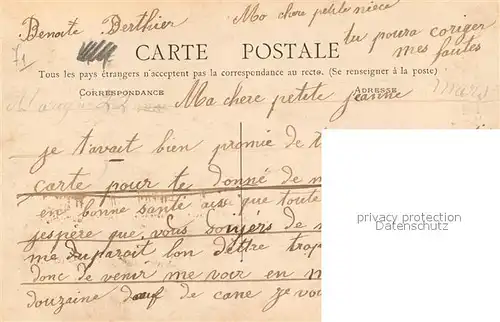 Benoite Berthier
Ma chere petite niece
tu poura coriger
mes fautes
71
CARTE POSTALE
Tous les pays étrangers n'acceptent pas la correspondance au recto. (Se renseigner à la poste)
CORRESPONDANCE
ADRESSE
Ma chere petite jeanne
je t'avait bien promie de
carte pour te donné de
en bonne santé que toute
jespère que vous soiyers de
me duparait bon dettre trop
donc de venir me voir en
douzaine dœuf de cane je
privacy protection
Datenschutz